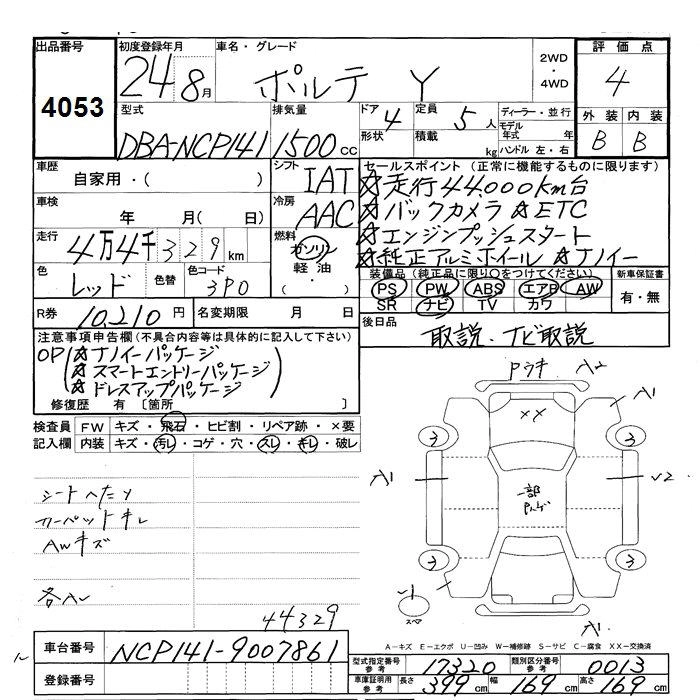 出品番号
4053
初度登録年月
24 8月
車名・グレード
ポルテ Y
2WD
・
4WD
評価点
4
外装 内装
B B
型式
DBA-NCP141
排気量
1500cc
ドア 4
形状
定員 5人
積載 kg
ディーラー・並行
モデル年式 年
ハンドル 左・右
車歴
自家用・( )
車検
年 月( 日)
走行
4万4千329km
色
レッド
色替
色コード
3P0
R券
10,210円
名変期限 月 日
シフト
IAT
冷房
AAC
燃料
ガソリン
軽油
・
( )
セールスポイント(正常に機能するものに限ります)
☆走行44,000km台
☆バックカメラ ☆ETC
☆エンジンプッシュスタート
☆純正アルミホイール ☆ナノイー
装備品(純正品に限り〇をつけてください)
PS PW ABS エアB AW
SR ナビ TV カワ
新車保証書
有・無
後日品
取説・ナビ取説
注意事項申告欄(不具合内容等は具体的に記入して下さい)
OP(☆ナノイーパッケージ
☆スマートエントリーパッケージ
☆ドレスアップパッケージ)
修復歴 有 [箇所 ]
検査員記入欄
FW キズ・飛石・ヒビ割・リペア跡・×要
内装 キズ・汚レ・コゲ・穴・スレ・キレ・破レ
シートヘたり
カーペットキレ
AWキズ
44329
車台番号
NCP141-9007861
登録番号
Pウキ A2
A1
××
3 3
A1
一部
V2
3 3
スペア
A1
A-キズ E-エクボ U-凹み W-補修跡 S-サビ C-腐食 XX-交換済
型式指定番号 参考 17320
類別区分番号 参考 0013
車庫証明用 参考 長さ 399cm 幅 169cm 高さ 169cm